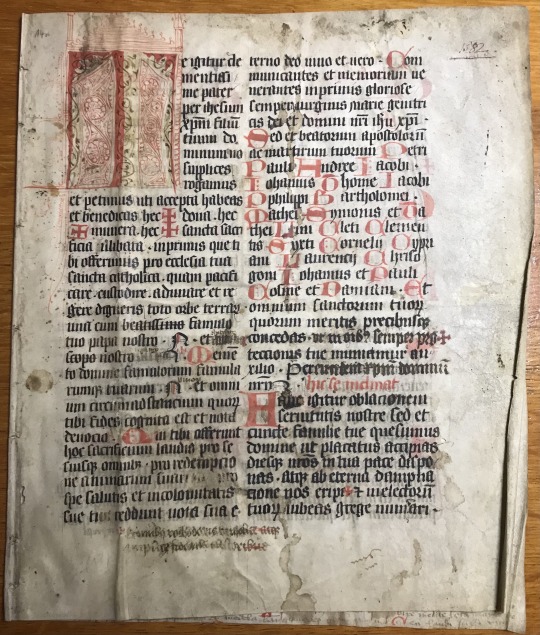 T
e igitur cle
mentissi
me pater
per ihesum
xpm filiu
tuum do
minum no
supplices
rogamus
et petimus uti accepta habeas
et benedicas. hec ✠ dona. hec
✠ munera. hec ✠ sancta sacri
ficia illibata. inprimis que ti
bi offerimus pro ecclesia tua
sancta catholica. quam pacifi
care. custodire. adunare et re
gere digneris toto orbe terraru
una cum beatissimo famulo
tuo papa nostro. N. et
scopo nostro Meme
to domine famulorum famula
rumque tuarum N. et omni
um circumadstancium quoru
tibi fides cognita est et nota
devocio. qui tibi offerunt
hoc sacrificium laudis pro se
suisque omnibus. pro redempcio
ne animarum suarum
spe salutis et incolumitatis
sue tibi reddunt vota sua e
terno deo vivo et vero. Com
municantes et memoriam ve
nerantes inprimis gloriose
semper virginis marie genitri
cis dei et domini nri ihu xpi.
Sed et beatorum apostoloru
ac martirum tuorum Petri
Pauli Andree Iacobi.
Iohannis Thome Iacobi
Philippi Bartholomei.
Mathei Symonis et Tha
thei Lini Cleti Clemen
tis Sixti Cornelii Cypri
ani Laurencii Criso
goni Iohannis et Pauli
Cosme et Damiani. Et
omnium sanctorum tuoru
quorum meritis precibusque
concedas. ut in omibus semper pro
tectionis tue muniamur au
xilio. Per eundem xpm dominu
nrm. hic se inclinat
Hanc igitur oblacionem
servitutis nostre sed et
cuncte familie tue quesumus
domine ut placatus accipias
diesque nros in tua pace dispo
nas. Atque ab eterna dampna
cione nos eripi et in electoru
tuoru iubeas grege numerari.